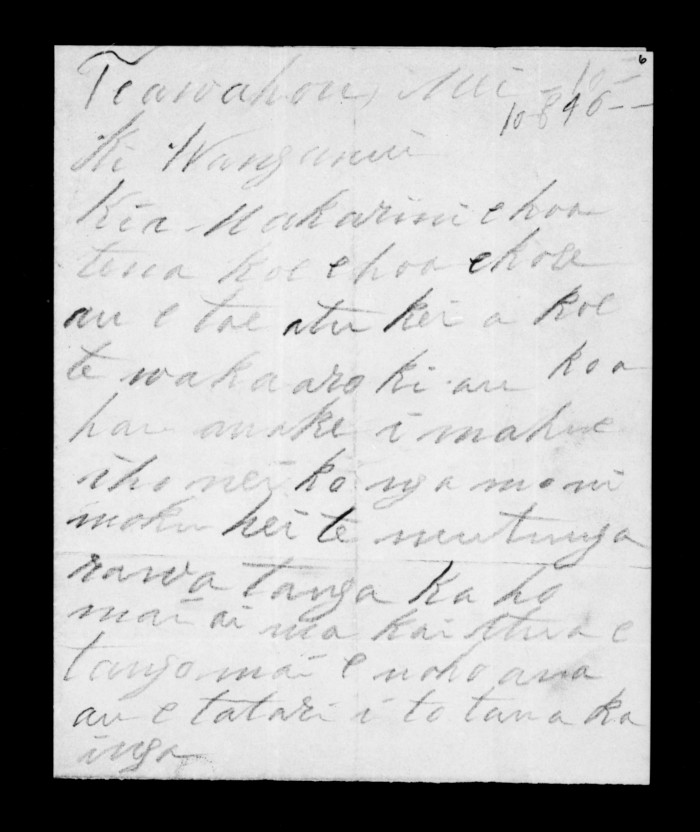 6
Teawahou, Mei 10
10-8 46--
Ki Wanganui
Kia Makarini ehoa
tena koe ehoa ehoa
au e tae atu kei a koe
te wakaaro ki au koa
hau anake i mahue
iho nei ko nga moni
moku hei te mutunga
rawa tanga ka ho
mai ai ma kai tua e
tango mai e noho ana
au e tatari i to tana ka
inga